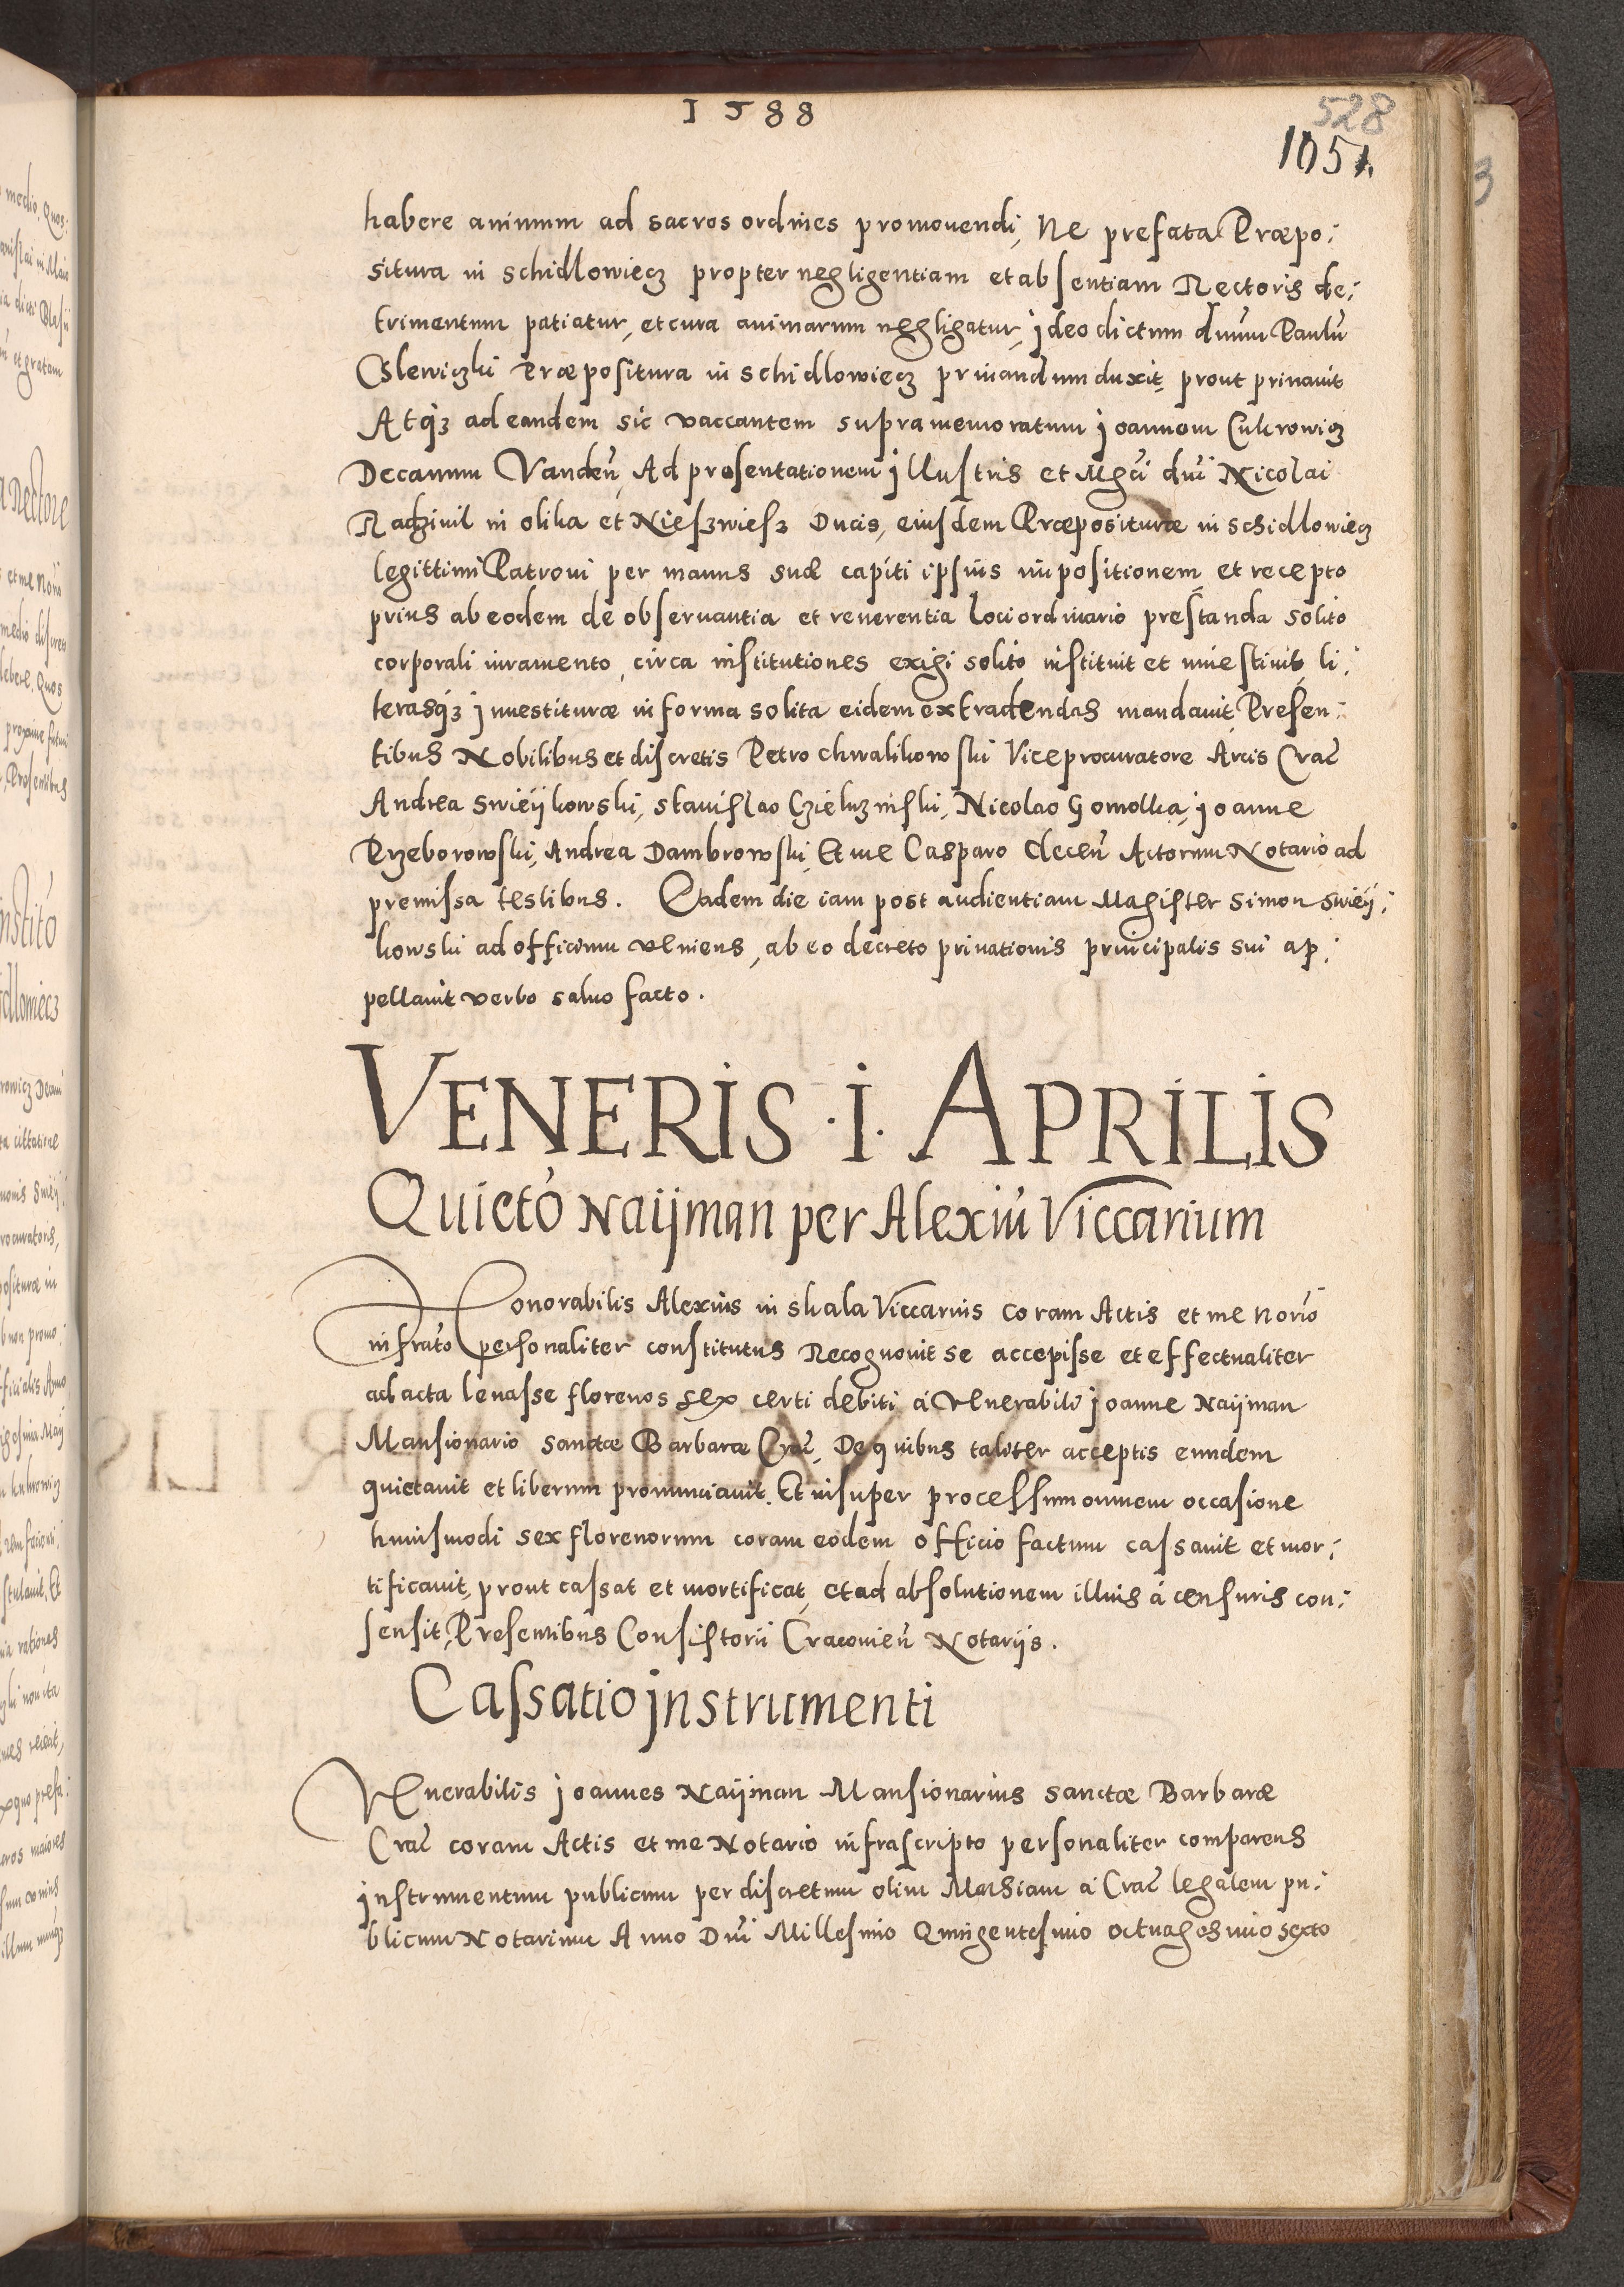 1588
528
1051.
habere animum ad sacros ordines promouendi, Ne prefata Præpo:
situra in schidlowiecz propter negligentiam et absentiam Rectoris de:
trimentum patiatur, et cura animarum negligatur, jdeo dictum dnūm Paulū
præpositura in schidlowiecz priuandum duxit, prout priuauit
Atqz ad eandem sic vaccantem supra memoratum joannem Cukrowicz
Decanum Vandeñ, Ad presentationem jllustris et Mgci dni Nicolai
Radziuil in olika et Nieszwiesz Ducis, eiusdem Præpositurae in schidlowiecz
legittimi Patroni per manus suæ capiti ipsius impositionem et recepto
prius ab eodem de obseruantia et reuerentia loci ordinario prestanda solito
corporali iuramento, circa institutiones exigi solito instituit et inuestiuit, li:
terasqz jnuestituræ in forma solita eidem extradendas mandauit, Presen:
tibus Nobilibus et discretis Petro chwalikowski Viceprocuratore Arcis Crac̃
Andrea swieijkowski, stanislao Nicolao Gomolka, joanne
Przeborowski, Andrea Dambrowski, Et me Casparo Actorum Notario ad
premissa testibus. Eadem die iam post audientiam Magister simon swieij:
kowski ad officium veniens, ab eo decreto priuationis principalis sui ap:
pellauit verbo saluo facto.
VENERIS · I · APRILIS
Quieto Naijman per Alexiū Viccarium
Honorabilis Alexius in skala Viccarius coram Actis et me norio
infrato personaliter constitutus Recognouit se accepisse et effectualiter
ad acta leuasse florenos sex certi debiti à venerabili joanne Naijman
Mansionario sanctæ Barbaræ Crac̃, De quibus taliter acceptis eundem
quietauit et liberum pronunciauit. Et insuper processum omnem occasione
huiusmodi sex florenorum coram eodem officio factum cassauit et mor:
tificauit, prout cassat et mortificat, et ad absolutionem illius à censuris con:
sensit, Presentibus Consistorii Cracouieñ Notarijs.
Cassatio jnstrumenti
Venerabilis joannes Naijman Mansionarius sanctæ Barbaræ
Crac̃ coram Actis et me Notario infrascripto personaliter comparens
jnstrumentum publicum per discretum olim Mathiam à Crac̃ legalem pu:
blicum Notarium Anno Dni Millesimo Quingentesimo octuagesimo sexto